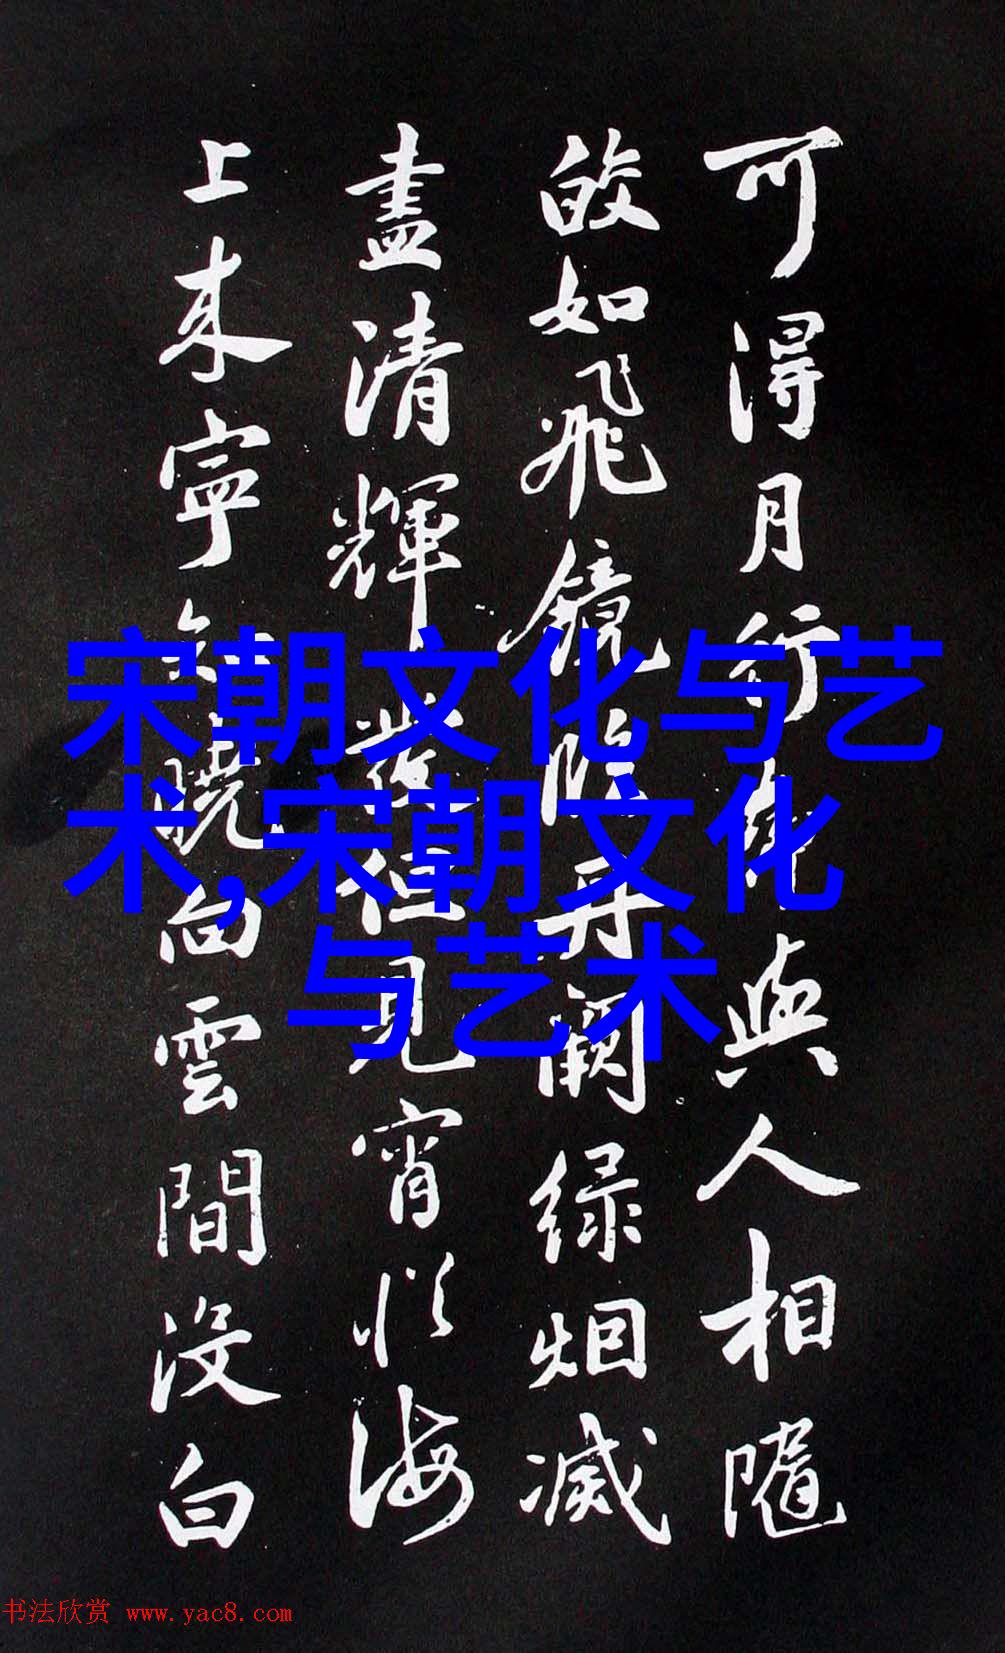 可得月行却與人相隨
皎如飛鏡臨丹闕绿烟滅
盡清輝發但見宵從海
上来寧知曉向雲間没白
宋朝文化与艺
术,宋朝文化
与艺术
书法欣赏 www.yac8.com